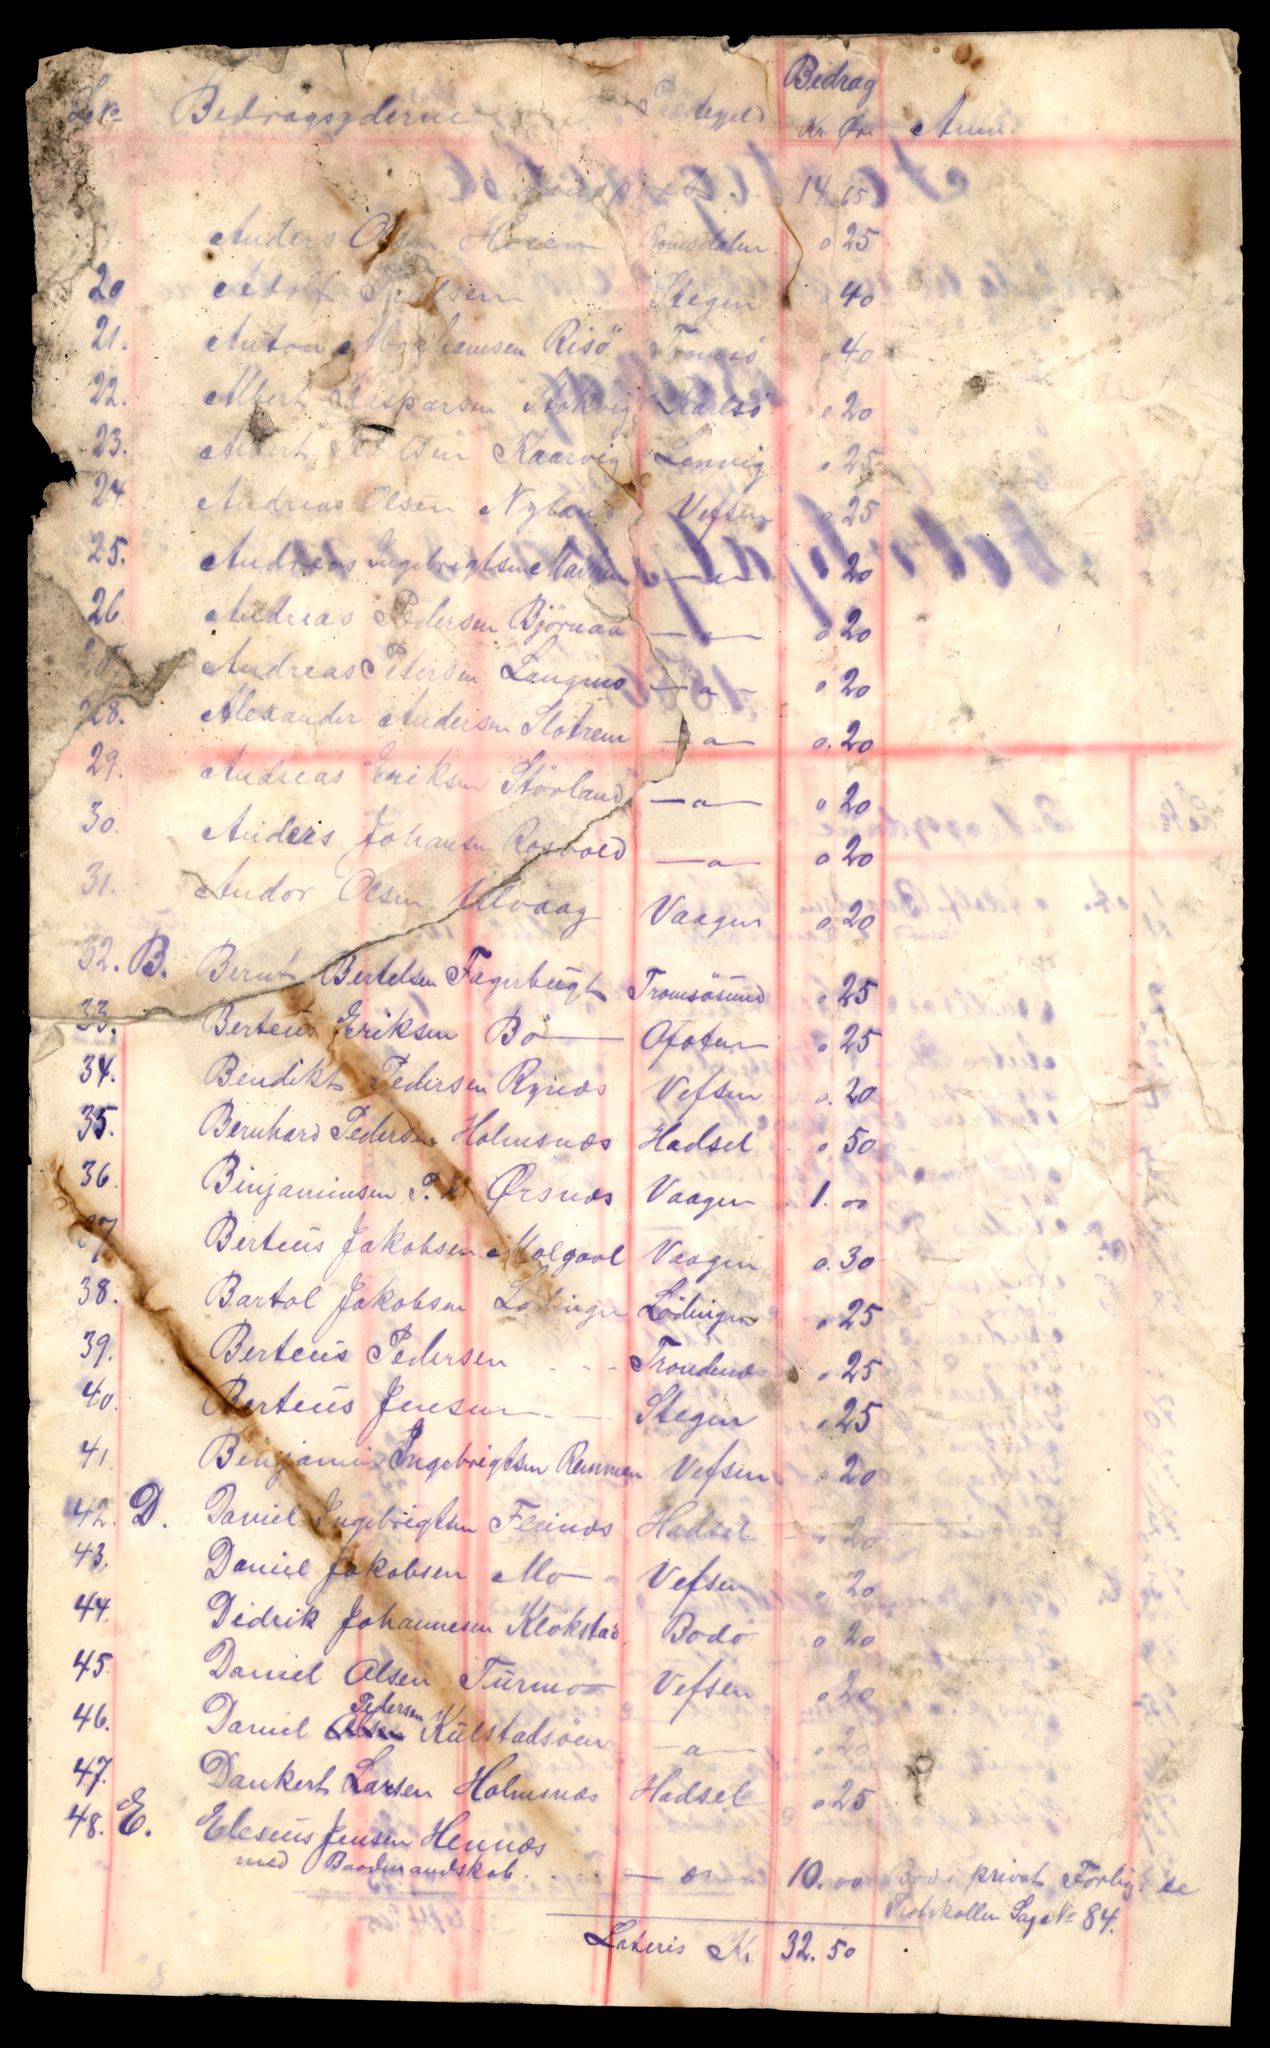 Bedrag
Lº Bedragsyderne Præstegjeld Kr Øre Anm.
14 65
Anders Olsen Romsdalen 0 25
20 Adolf Stegen 40
21. Anton Abrahamsen Risö Tromsö 40
22. Albert Kaspersen Karlsö 0 20
23. Albert Kaarvig Lenvig 0 25
24. Andreas Olsen Nyland Vefsen 0 25
25. Andreas Ingebrigtsen — " — 0 20
26. Andreas Pedersen Björnaa — " — 0 20
27. Andreas Petersen Langmo — " — 0 20
28. Alexander Andersen Slotrem — " — 0. 20
29. Andreas Eriksen Störland — " — 0 20
30. Anders Johansen Rosvold — " — 0 20
31. Andor Olsen Ulvaag Vaagen 0. 20
32. B. Bernt Bertelsen Fagerbugt Tromsösund 0 25
33. Berteus Eriksen Bö Ofoten 0 25
34. Bendikt Pedersen Rynæs Vefsen 0. 20
35. Bernhard Pedersen Holmsnæs Hadsel 0 50
36. Binjaminsen P. Ørsnæs Vaagen 1. 00
37 Berteus Jakobsen Molgavl Vaagen 0. 30
38. Bartol Jakobsen Lödingen Lödingen 0 25
39. Berteus Pedersen Trondenæs 0 25
40. Berteus Jensen Stegen 0 25
41 Benjamin Ingebrigtsen Remmen Vefsen 0 20
42. D. Daniel Ingebrigtsen Fleinæs Hadsel 0 20
43. Daniel Jakobsen Mo Vefsen 0 20
44. Didrik Johannesen Klokstad Bodö 0 20
45. Daniel Olsen Turmo Vefsen 0 20
46. Daniel Pedersen Kulstadsöen — " — 0 20
47. Dankert Larsen Holmsnæs Hadsel 0 25
48. E. Eleseus Jensen Hennæs
med Baadmandskab. — " — 10. 00 Bod i privat Forlig. se
Protokollen Sag Nº 84.
Lateris Kr. 32. 50